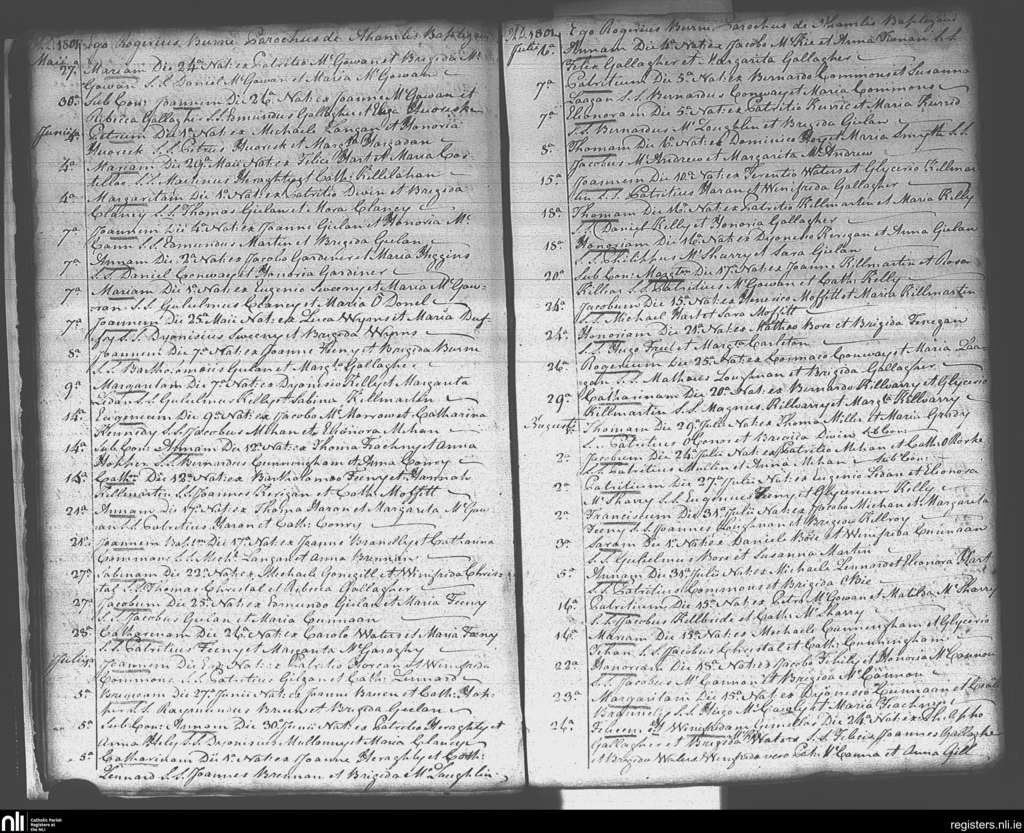 A.D. 1801 Ego Rogerius Burne Parochus de Ahamlis Baptizavi
Maii
27a Mariam Die 24a Nat: ex Patritio McGowan et Brigida Mc
Gowan S.S. Daniel McGowan et Maria McGowan
30a Sub Con: Joannem Die 26a Nat: ex Joanne McGowan et
Rebecca Gallagher S.S. Edmundus Gallagher et
Junii 4a Petrum Die 1a Nat: ex Michaele Langan et Honoria
S.S. Petrus et Margta Hargadan
4a Mariam Die 29a Maii Nat: ex Felice Hart et Maria Cos-
telloe S.S. Martinus Heraghty et Cath: Killilahan
4a Margaritam Die 1a Nat: ex Patritio Dwin et Brigida
Clancy S.S. Thomas Gielan et Nora Clancy
7a Joannem Die 4a Nat: ex Joanne Gielan et Honoria Mc
Cann S.S. Edmundus Martin et Brigida Gielan
7a Annam Die 2a Nat: ex Jacobo Gardiner et Maria Higgins
S.S. Daniel Conway et Honoria Gardiner
7a Mariam Die 1a Nat: ex Eugenio Sweeny et Maria McGow-
ran S.S. Gulielmus Clancy et Maria O Donel
7a Joannem Die 25a Maii Nat: ex Luca Wynns et Maria Duf-
fy S.S. Dyonisius Sweeny et Brigida Wynns
8a Joannem Die 7a Nat: ex Joanne Feeny et Brigida Burne
S.S. Bartholomaeus Gielan et Margta Gallagher
9a Margaritam Die 7a Nat: ex Dyonisio Killy et Margarita
S.S. Gulielmus Killy et Sabina Killmartin
14a Eugenium Die 9a Nat: ex Jacobo McMorrow et Catharina
Kennedy S.S. Jacobus Mihan et Elionora Mihan
14a Sub Con: Annam Die 12a Nat: ex Thoma Feachny et Anna
S.S. Bernardus Cunningham et Anna Conry
15a Cath: Die 12a Nat: ex Bartholomaeo Feeny et Hannah
Killmartin S.S. Joannes Kerigan et Cath: Moffitt
21a Annam Die 17a Nat: ex Thoma Haran et Margarita McGow-
an S.S. Patritius Haran et Cath: Conry
21a Joannem Die 17a Nat: ex Joanne Brandly et Catharina
Commons S.S. Michl Langan et Anna Brennan
27a Sabinam Die 22a Nat: ex Michaele Gonigill et Winifrida Chris-
tal S.S. Thomas Christal et Rebecca Gallagher
27a Jacobum Die 25a Nat: ex Edmundo Gielan et Maria Feeny
S.S. Jacobus Gielan et Maria Cunnaan
28a Catharinam Die 26a Nat: ex Carolo Waters et Maria Feeny
S.S. Patritius Feeny et Margarita McGaraghy
Julii Joannem Die Nat: ex Patritio et Winifrida
Commons S.S. Patritius Gilgan et Cath: Lennard
5a Brigidam Die 27a Junii Nat: ex Joanne Bruen et Cath: Hop-
S.S. Raymundus Bruen et Brigida Gielan
5a Sub Con: Annam Die 30a Junii Nat: ex Patritio Heraghty et
Anna Hely S.S. Dyonisius Mullany et Maria Clancy
5a Catharinam Die 1a Nat: ex Joanne Heraghty et Cath:
Lennard S.S. Joannes Brennan et Brigida McLaughlin
A.D. 1801 Ego Rogerius Burne Parochus de Ahamlis Baptizavi
Julii 6a Annam Die 4a Nat: ex Jacobo McKie et Anna Keenan S.S.
Felix Gallagher et Margarita Gallagher
7a Patritium Die 5a Nat: ex Bernardo Commons et Susanna
S.S. Bernardus Conway et Maria Commons
7a Elionoram Die 5a Nat: ex Patritio et Maria
S.S. Bernardus McLoughlin et Brigida Gielan
8a Thomam Die 1a Nat: ex Dominico Hoy et Maria Smyth S.S.
Jacobus McAndrew et Margarita McAndrew
15a Joannem Die 10a Nat: ex Terentio Waters et Glycerio Killmar-
tin S.S. Patritius Haran et Winifrida Gallagher
18a Thomam Die 14a Nat: ex Patritio Killmartin et Maria Killy
S.S. Daniel Killy et Honoria Gallagher
18a Honoriam Die 16a Nat: ex Dyonisio Kerigan et Anna Gielan
S.S. Philippus McSharry et Sara Gielan
20a Sub Con: Die 17a Nat: ex Joanne Killmartin et Rosa
S.S. Patritius McGowan et Cath: Killy
24a Jacobum Die 15a Nat: ex Henrico Moffitt et Maria Killmartin
S.S. Michael Hart et Sara Moffitt
24a Honoriam Die 21a Nat: ex Mattheo Bove et Brigida Finegan
S.S. Hugo Friel et Margta Carleton
26a Rogerium Die 25a Nat: ex Cormaco Conway et Maria Laa-
gan S.S. Mathaeus Loughnan et Brigida Gallagher
29a Catharinam Die 20a Nat: ex Bernardo Killvarry et Glycerio
Killmartin S.S. Magnus Killvarry et Margta Killvarry
August 1a Thomam Die 29a Julii Nat: ex Thoma Miller et Maria Grady
S.S. Patritius O Conor et Brigida Dwin
2a Jacobum Die 24a Julii Nat: ex Patritio Mihan et Cath: O Rorke
S.S. Patritius et Anna Mihan Sub Con:
2a Patritium Die 27a Julii Nat: ex Eugenio et Elionora
McSharry S.S. Eugenius Feeny et Glycerium Killy
2a Franciscum Die 31a Julii Nat: ex Jacobo Mihan et Margarita
Feeny S.S. Joannes Loughnan et Brigida Killroy
3a Saram Die 1a Nat: ex Daniele Bove et Winifrida Cunnaan
S.S. Gulielmus Bove et Susanna Martin
5a Annam Die 31a Julii Nat: ex Michaele Lennard et Elionora Hart
S.S. Patritius Commons et Brigida
16a Patritium Die 15a Nat: ex Petro McGowan et Matilda McSharry
S.S. Jacobus Killbride et Cath: McSharry
16a Mariam Die 13a Nat: ex Michaele Cunningham et Glycerio
S.S. Jacobus Christal et Cath: Cunningham
22a Honoriam Die 18a Nat: ex Jacobo et Honoria McCannon
S.S. Jacobus McCannon et Brigida McCannon
23a Margaritam Die 15a Nat: ex Dyonisio Cunnaan et
S.S. Hugo McGaraly et Maria Feachny
26a Felicem et Winifridam Gemellos Die 24a Nat: ex Philippo
Gallagher et Brigida Waters S.S. Felicis Joannes Gallagher
et Brigida Waters Winifrida vero Pat: McCanna et Anna Gill
nli Catholic Parish Registers at the NLI
registers.nli.ie